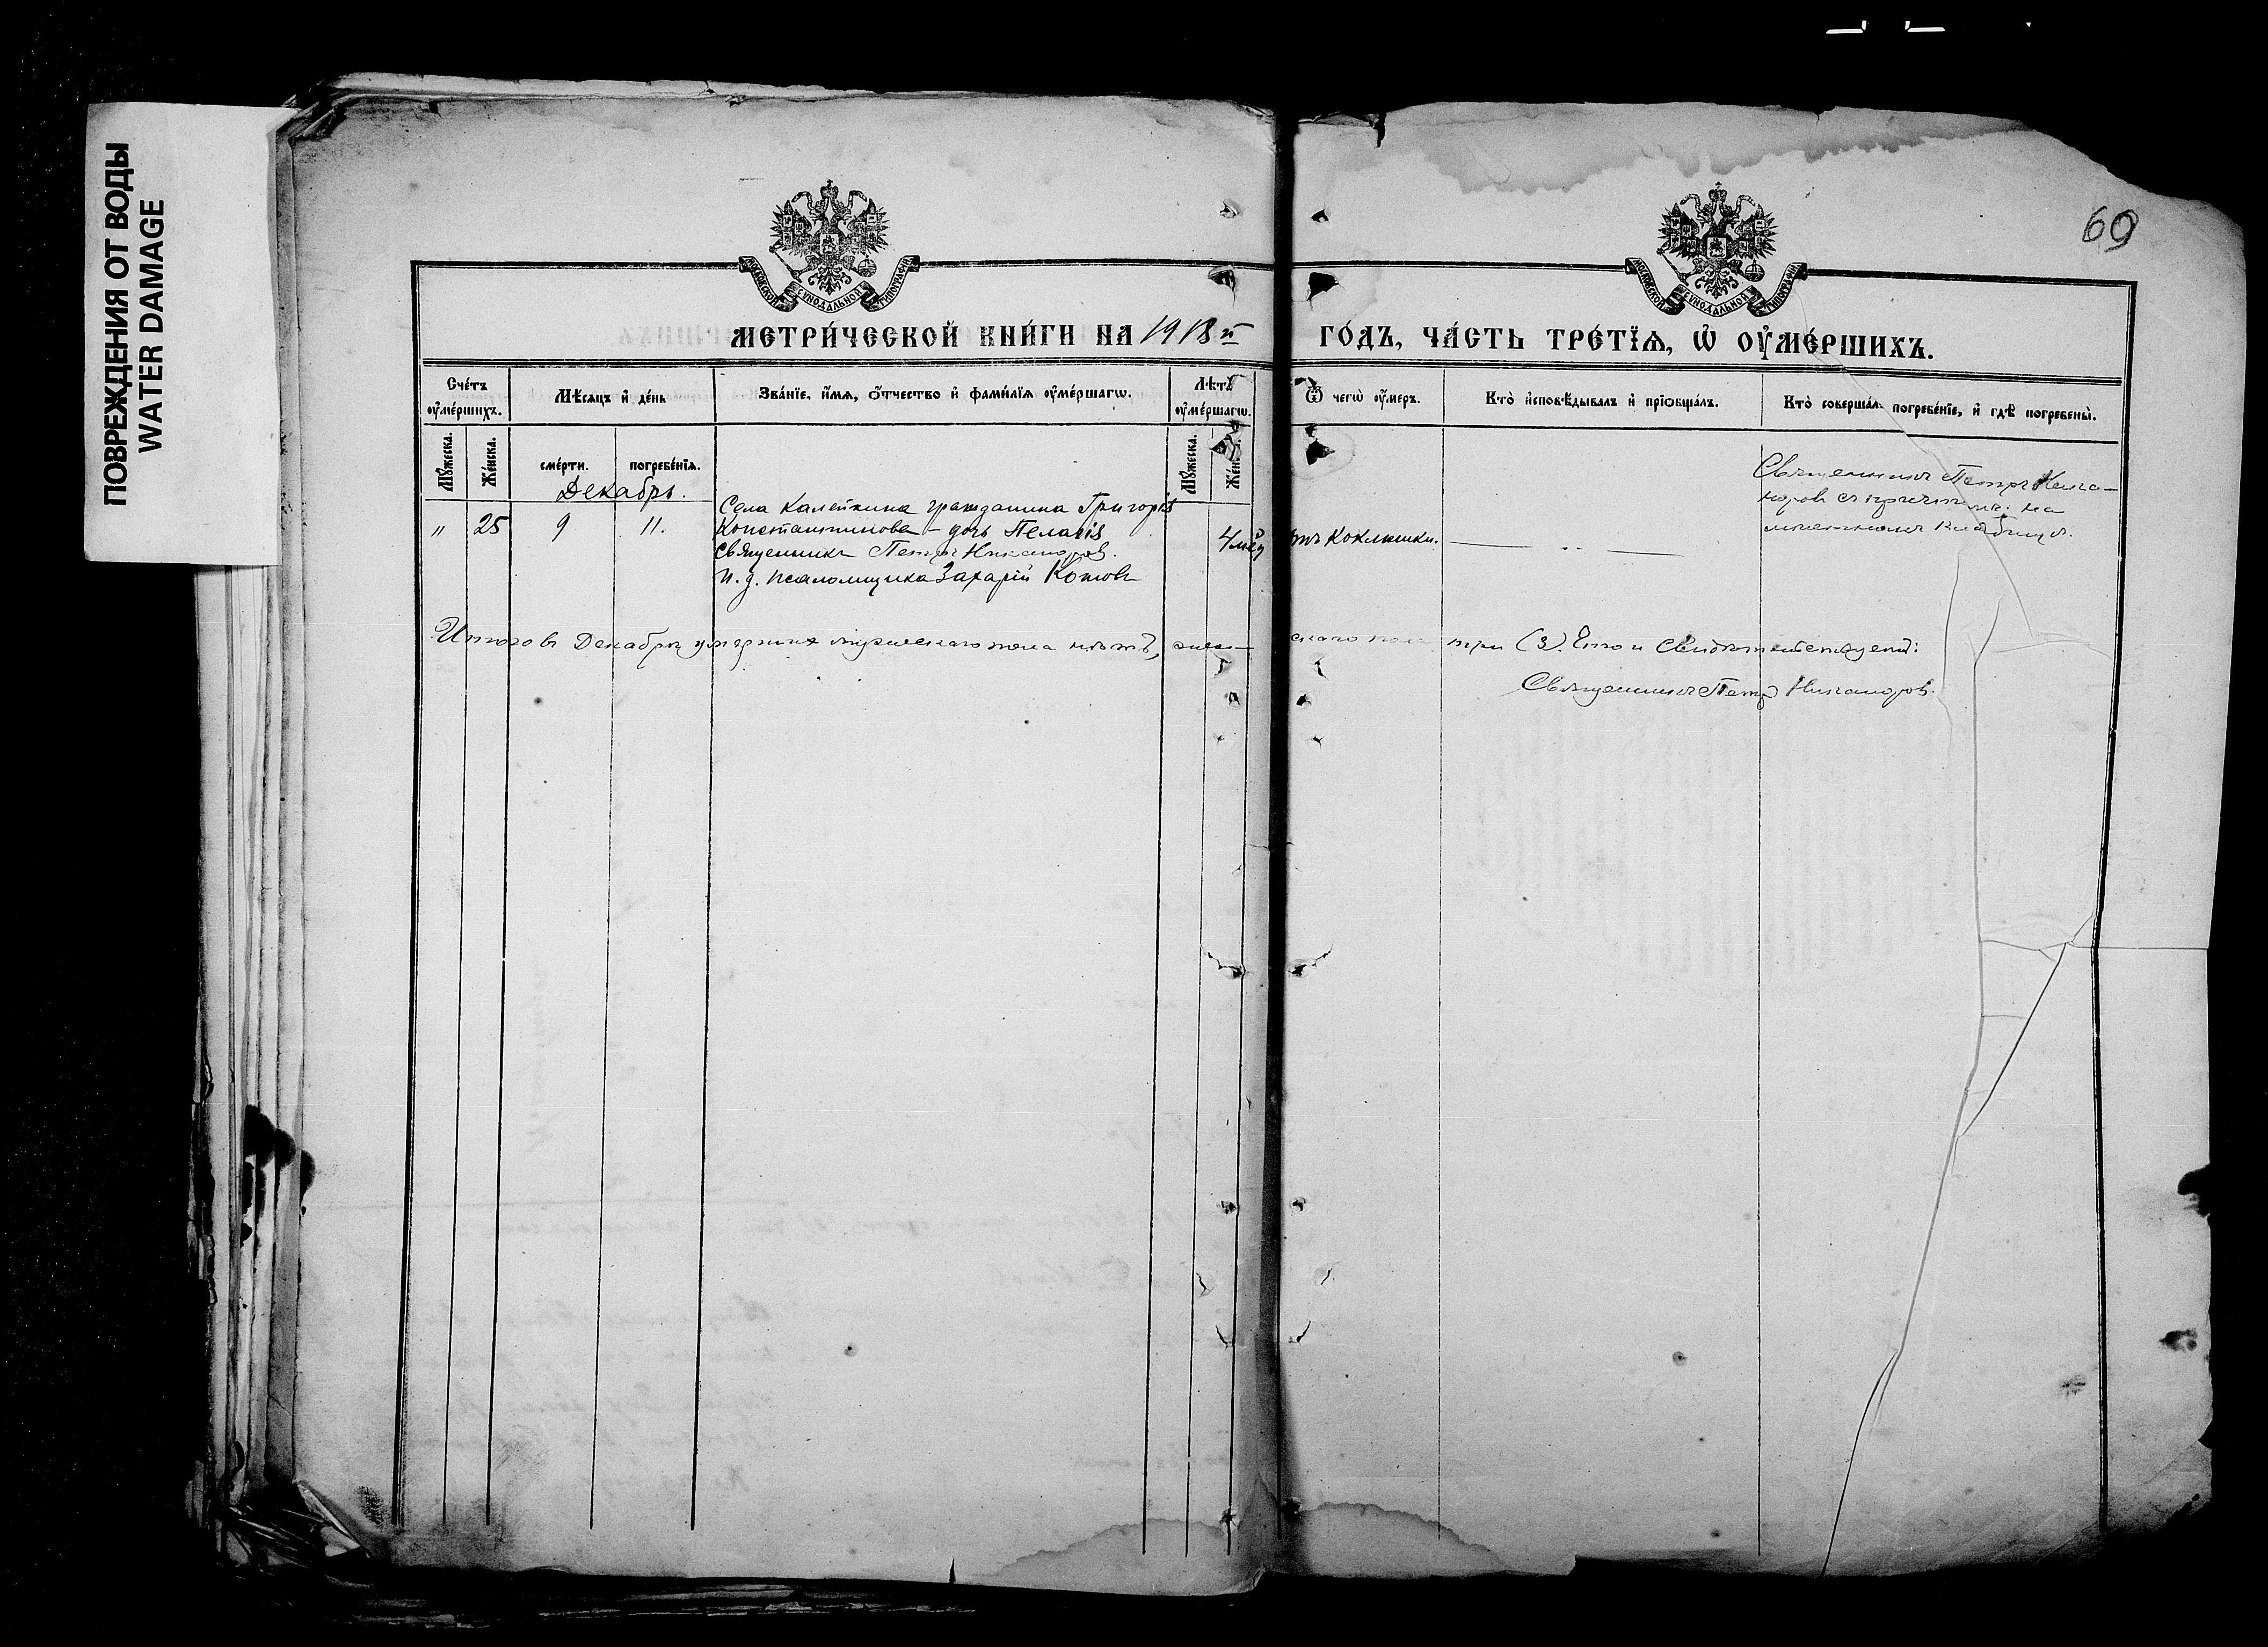 ПОВРЕЖДЕНИЯ ОТ ВОДЫ
WATER DAMAGE
69
МОСКОВСКОЙ СѴНОДАЛЬНОЙ ТИПОГРАФІИ
МОСКОВСКОЙ СѴНОДАЛЬНОЙ ТИПОГРАФІИ
МЕТРИ́ЧЕСКОЙ КНИ́ГИ НА 1918 й ГО́ДЪ, ЧА́СТЬ ТРЕ́ТІѦ, Ѡ҆ ОУ҆МЕ́РШИХЪ.
Сче́тъ оу҆ме́ршихъ.
Мѣ́сѧцъ и҆ де́нь
Зва́нїе, и҆́мѧ, ѻ҆́тчество и҆ фами́лїѧ оу҆ме́ршагѡ.
Лѣ́тъ оу҆ме́ршагѡ.
Ѿ чегѡ̀ оу҆́меръ.
Кто̀ и҆сповѣ́дывалъ и҆ прїѡбща́лъ.
Кто̀ соверша́лъ погребе́нїе, и҆ гдѣ̀ погребены̀.
Мꙋ́жеска.
Же́нска.
сме́рти.
погребе́нїѧ.
Мꙋ́жеска.
Же́н
Декабрь.
" 25 9 11.
Села Калейкина гражданина Григорія
Константинова - дочь Пелагія
Священникъ Петръ Никаноров.
И. д. псаломщика Захарій Котовъ
4 мѣс
отъ коклюшки.
Священникъ Петръ Ника-
норовъ съ причтомъ на
мѣстномъ кладбищѣ.
Итого въ Декабрѣ умершихъ мужескаго пола нѣтъ, жен-
скаго пола три (3). Что и свидѣтельствуетъ:
Священникъ Петръ Никаноров.